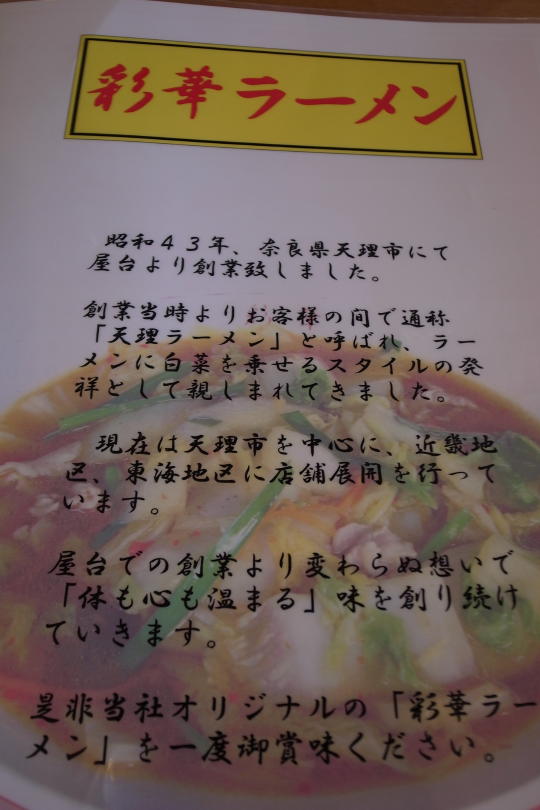 彩華ラーメン
昭和43年、奈良県天理市にて
屋台より創業致しました。
創業当時よりお客様の間で通称
「天理ラーメン」と呼ばれ、ラー
メンに白菜を乗せるスタイルの発
祥として親しまれてきました。
現在は天理市を中心に、近畿地
区、東海地区に店舗展開を行って
います。
屋台での創業より変わらぬ想いで
「体も心も温まる」味を創り続け
ていきます。
是非当社オリジナルの「彩華ラー
メン」を一度御賞味ください。